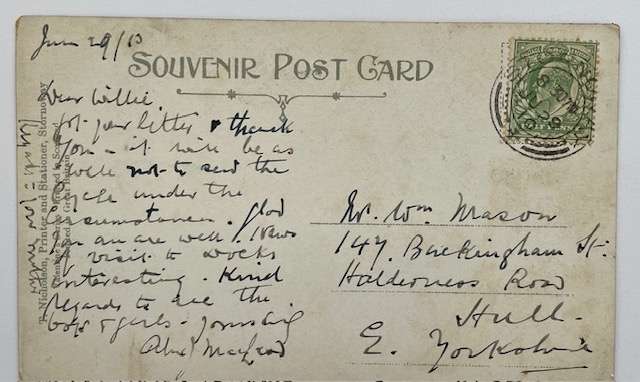 June 29/13
SOUVENIR POST CARD
Dear Willie.
Got your letter & thank
you – it will be as
well not to send the
cycle under the
circumstances. Glad
you are well. News
of visit to Docks
interesting. Kind
regards to all the
boys & girls – yours
Alex Macleod
T. Nicolson, Printer and Stationer, Stornoway
Mr. Wm Mason
147. Buckingham St.
Holderness Road
Hull.
E. Yorkshire